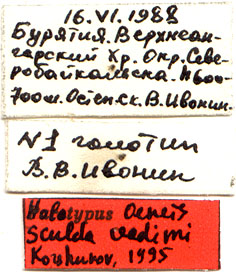 16.VI.1988
Бурятия. Верхнеан-
гарский Хр. Окр. Севе-
робайкальска. h600-
700м. Остеп.ск. В.Ивонин.
N1 голотип
В.В.Ивонин
Holotypus Oeneis
Sculda vadimi
Korshunov, 1995